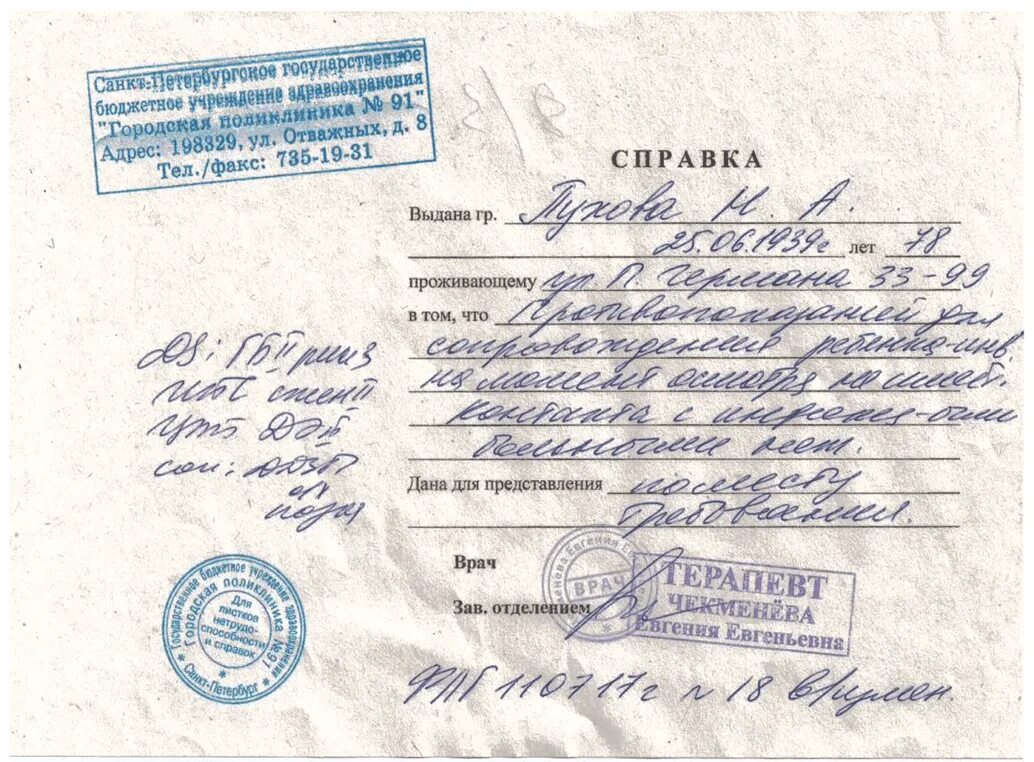 Санкт-Петербургское государственное
бюджетное учреждение здравоохранения
"Городская поликлиника № 91"
Адрес: 198329, ул. Отважных, д. 8
Тел./факс: 735-19-31
СПРАВКА
Выдана гр. Пухова Н. А.
25.06.1939г лет 78
проживающему ул П. Германа 33-99
в том, что Противопоказаний для
сопровождения ребенка-инв.
на момент осмотра не имеет.
Контакта с
больными нет.
Дана для представления по месту
требования.
DS: ГБII риск 3
ЦВБ ДЭII
соп:
Врач
Зав. отделением
ВРАЧ
ТЕРАПЕВТ
ЧЕКМЕНЁВА
Евгения Евгеньевна
Государственное бюджетное учреждение здравоохранения
Городская поликлиника №91
Санкт-Петербург
Для
листков
нетрудо-
способности
и справок
ФЛГ 110717г № 18